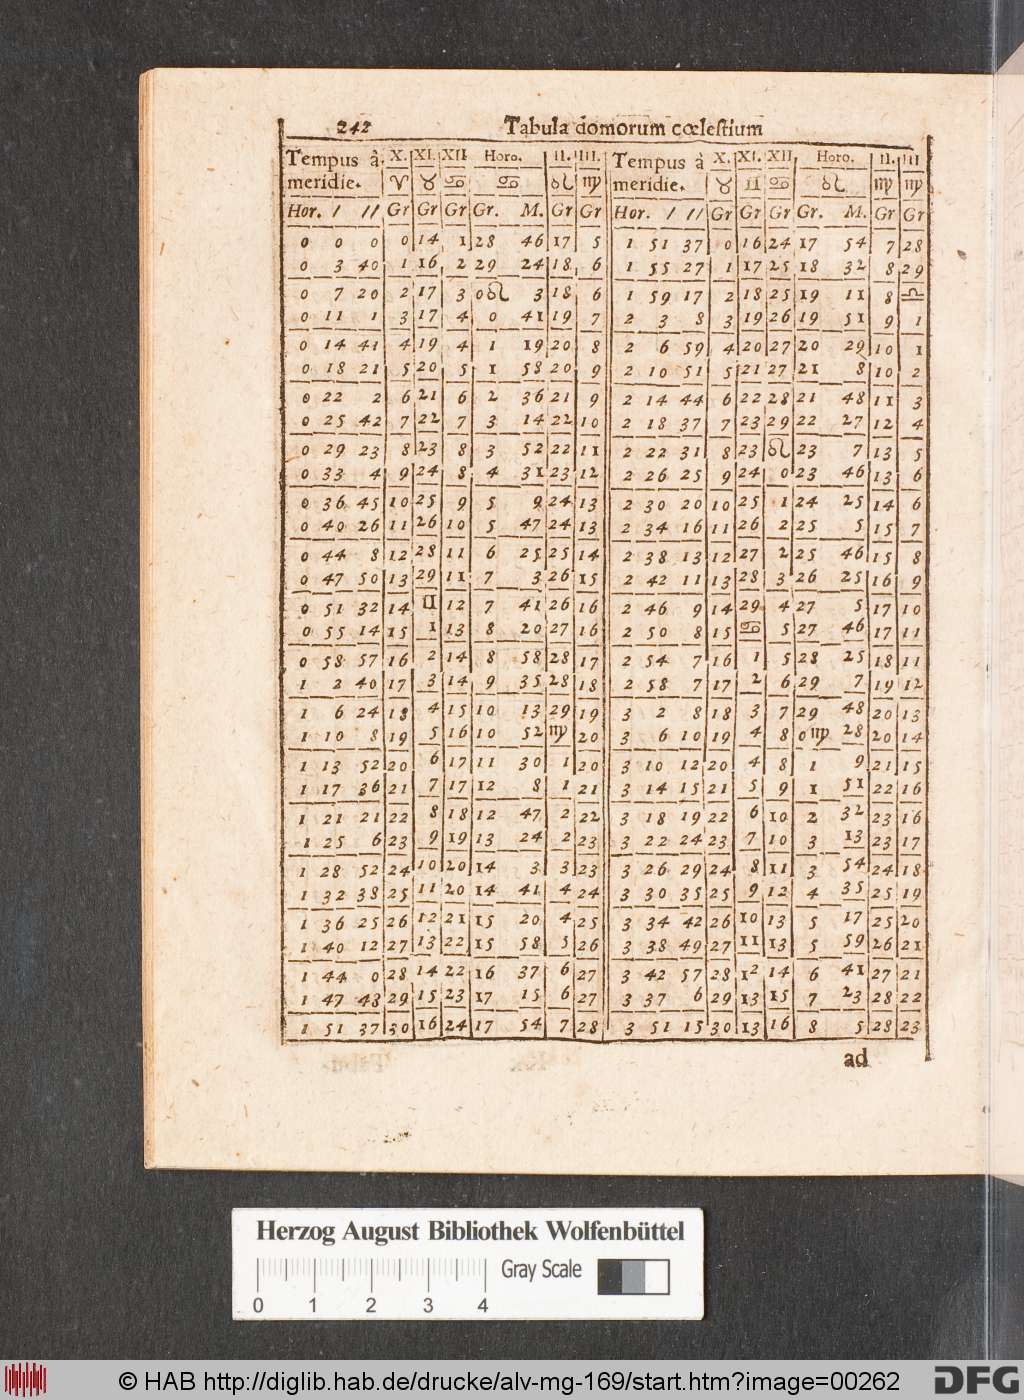 242 Tabula domorum cœlestium
Tempus à X. XI. XII Horo. II. III. Tempus à X. XI. XII Horo. II. III
meridie. ♈ ♉ ♋ ♋ ♌ ♍ meridie. ♉ ♊ ♋ ♌ ♍ ♍
Hor. / // Gr Gr Gr Gr. M. Gr Gr Hor. / // Gr Gr Gr Gr. M. Gr Gr
0 0 0 0 14 1 28 46 17 5 1 51 37 0 16 24 17 54 7 28
0 3 40 1 16 2 29 24 18 6 1 55 27 1 17 25 18 32 8 29
0 7 20 2 17 3 0♌ 3 18 6 1 59 17 2 18 25 19 11 8 ♎
0 11 1 3 17 4 0 41 19 7 2 3 8 3 19 26 19 51 9 1
0 14 41 4 19 4 1 19 20 8 2 6 59 4 20 27 20 29 10 1
0 18 21 5 20 5 1 58 20 9 2 10 51 5 21 27 21 8 10 2
0 22 2 6 21 6 2 36 21 9 2 14 44 6 22 28 21 48 11 3
0 25 42 7 22 7 3 14 22 10 2 18 37 7 23 29 22 27 12 4
0 29 23 8 23 8 3 52 22 11 2 22 31 8 23 ♌ 23 7 13 5
0 33 4 9 24 8 4 31 23 12 2 26 25 9 24 0 23 46 13 6
0 36 45 10 25 9 5 9 24 13 2 30 20 10 25 1 24 25 14 6
0 40 26 11 26 10 5 47 24 13 2 34 16 11 26 2 25 5 15 7
0 44 8 12 28 11 6 25 25 14 2 38 13 12 27 2 25 46 15 8
0 47 50 13 29 11 7 3 26 15 2 42 11 13 28 3 26 25 16 9
0 51 32 14 ♊ 12 7 41 26 16 2 46 9 14 29 4 27 5 17 10
0 55 14 15 1 13 8 20 27 16 2 50 8 15 ♋ 5 27 46 17 11
0 58 57 16 2 14 8 58 28 17 2 54 7 16 1 5 28 25 18 11
1 2 40 17 3 14 9 35 28 18 2 58 7 17 2 6 29 7 19 12
1 6 24 18 4 15 10 13 29 19 3 2 8 18 3 7 29 48 20 13
1 10 8 19 5 16 10 52 ♍ 20 3 6 10 19 4 8 0♍ 28 20 14
1 13 52 20 6 17 11 30 1 20 3 10 12 20 4 8 1 9 21 15
1 17 36 21 7 17 12 8 1 21 3 14 15 21 5 9 1 51 22 16
1 21 21 22 8 18 12 47 2 22 3 18 19 22 6 10 2 32 23 16
1 25 6 23 9 19 13 24 2 23 3 22 24 23 7 10 3 13 23 17
1 28 52 24 10 20 14 3 3 23 3 26 29 24 8 11 3 54 24 18
1 32 38 25 11 20 14 41 4 24 3 30 35 25 9 12 4 35 25 19
1 36 25 26 12 21 15 20 4 25 3 34 42 26 10 13 5 17 25 20
1 40 12 27 13 22 15 58 5 26 3 38 49 27 11 13 5 59 26 21
1 44 0 28 14 22 16 37 6 27 3 42 57 28 12 14 6 41 27 21
1 47 48 29 15 23 17 15 6 27 3 37 6 29 13 15 7 23 28 22
1 51 37 30 16 24 17 54 7 28 3 51 15 30 13 16 8 5 28 23
ad
Herzog August Bibliothek Wolfenbüttel
Gray Scale
0 1 2 3 4
© HAB http://diglib.hab.de/drucke/alv-mg-169/start.htm?image=00262
DFG